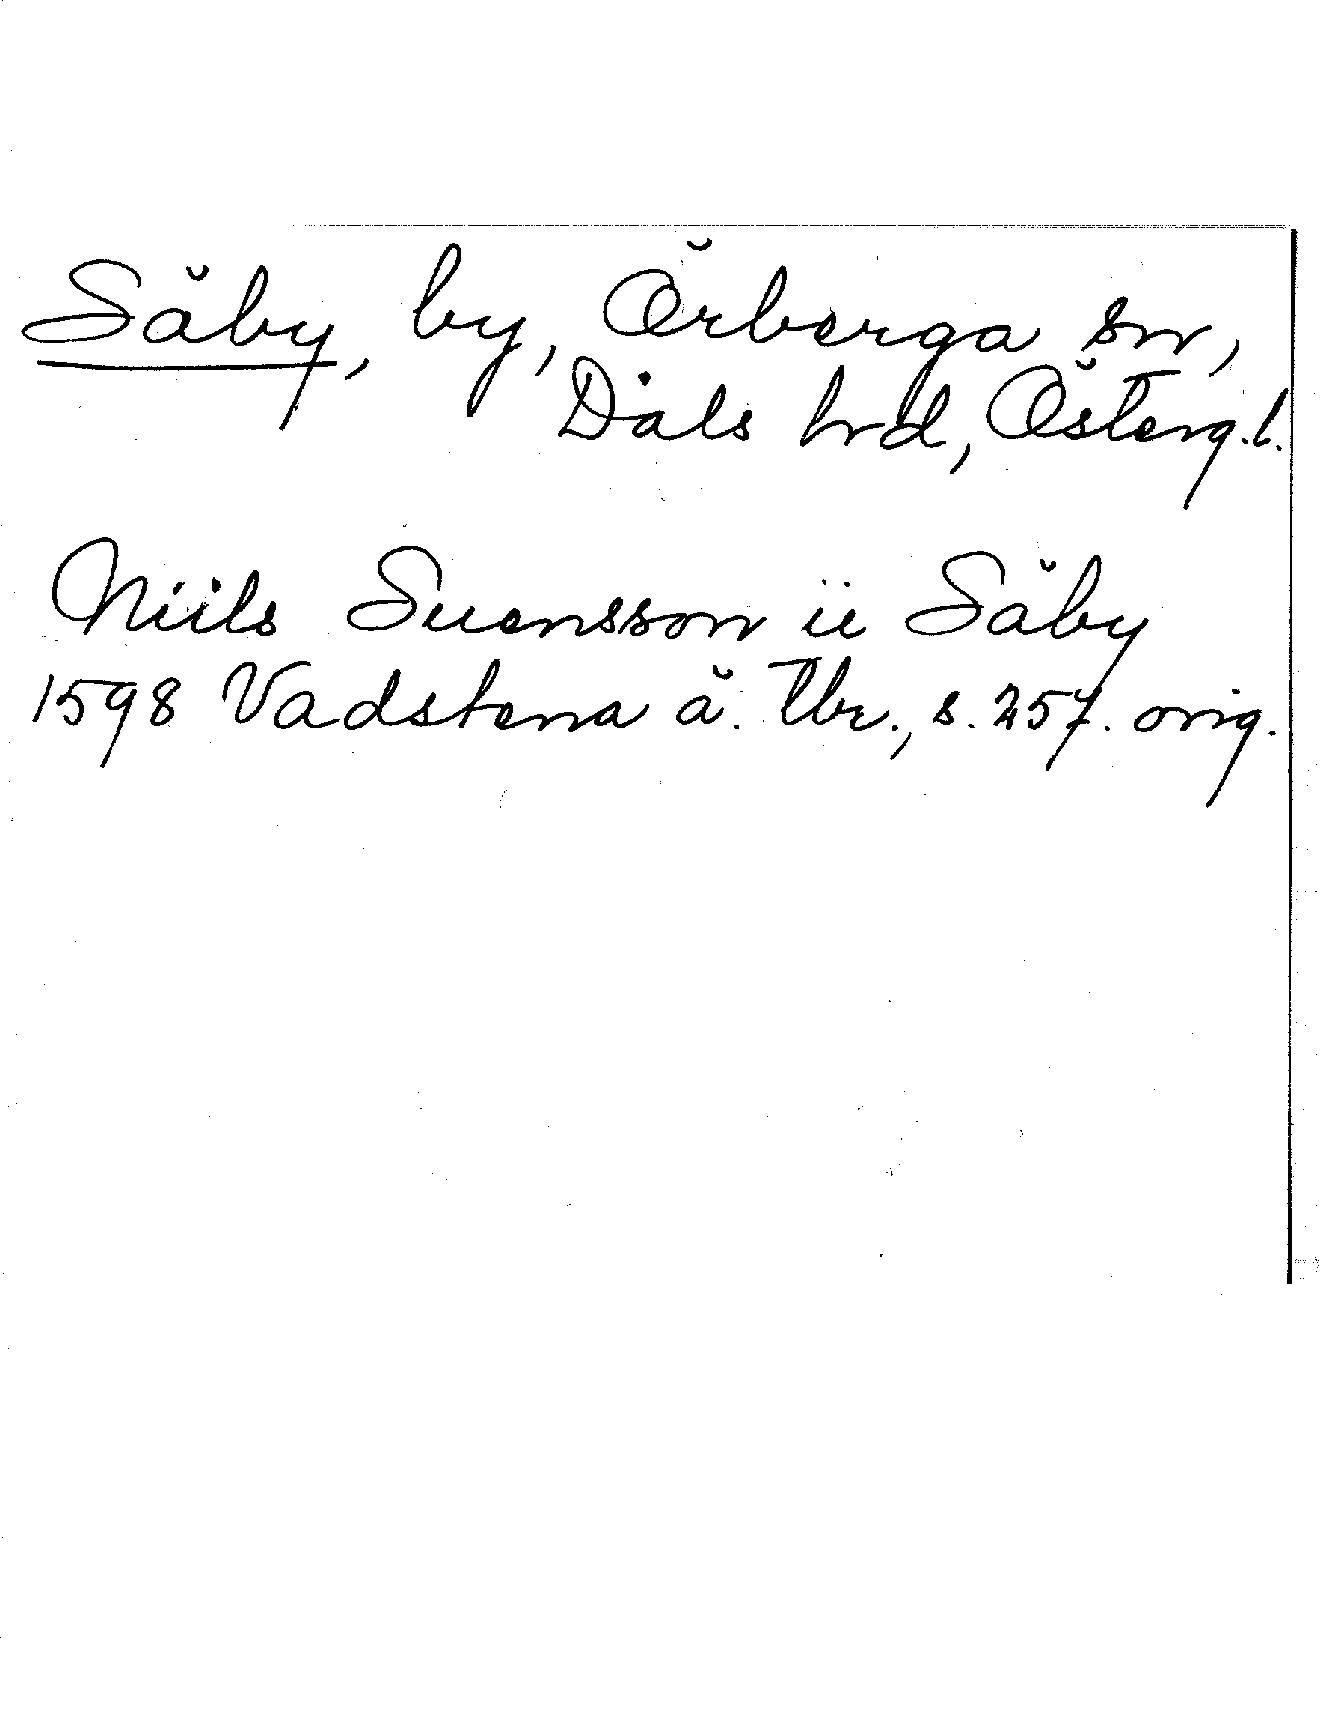 Säby, by, Örberga sn,
Dals hrd, Österg.l.
Niils Suensson ii Säby
1598 Vadstena ä. tbr., s. 257. orig.